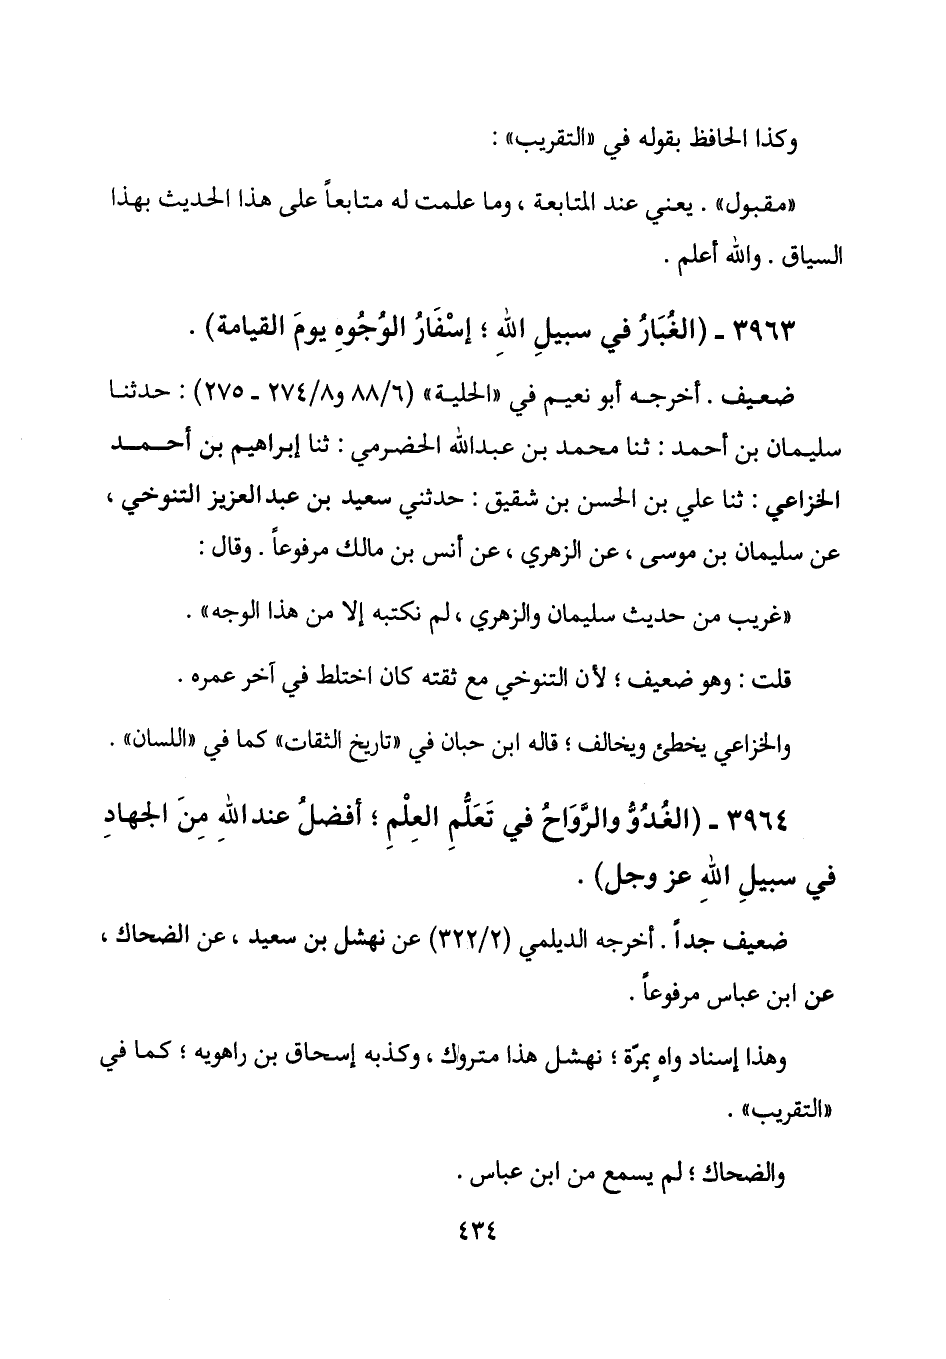 وكذا الحافظ بقوله في «التقريب» :
«مقبول» . يعني عند المتابعة ، وما علمت له متابعاً على هذا الحديث بهذا
السياق . والله أعلم .
٣٩٦٣ ـ (الغُبَارُ في سبيلِ اللهِ ؛ إسْفَارُ الوُجُوهِ يومَ القيامة) .
ضعيف . أخرجه أبو نعيم في «الحلية» (٨٨/٦ و٢٧٤/٨ ـ ٢٧٥) : حدثنا
سليمان بن أحمد : ثنا محمد بن عبدالله الحضرمي : ثنا إبراهيم بن أحمد
الخزاعي : ثنا علي بن الحسن بن شقيق : حدثني سعيد بن عبدالعزيز التنوخي ،
عن سليمان بن موسى ، عن الزهري ، عن أنس بن مالك مرفوعاً . وقال :
«غريب من حديث سليمان والزهري ، لم نكتبه إلا من هذا الوجه» .
قلت : وهو ضعيف ؛ لأن التنوخي مع ثقته كان اختلط في آخر عمره .
والخزاعي يخطئ ويخالف ؛ قاله ابن حبان في «تاريخ الثقات» كما في «اللسان» .
٣٩٦٤ ـ (الغُدُوُّ والرَّوَاحُ في تَعَلُّمِ العِلْمِ ؛ أفضلُ عندَاللهِ مِنَ الجهادِ
في سبيلِ اللهِ عز وجل) .
ضعيف جداً . أخرجه الديلمي (٣٢٢/٢) عن نهشل بن سعيد ، عن الضحاك ،
عن ابن عباس مرفوعاً .
وهذا إسناد واهٍ بمرّة ؛ نهشل هذا متروك ، وكذبه إسحاق بن راهويه ؛ كما في
«التقريب» .
والضحاك ؛ لم يسمع من ابن عباس .
٤٣٤